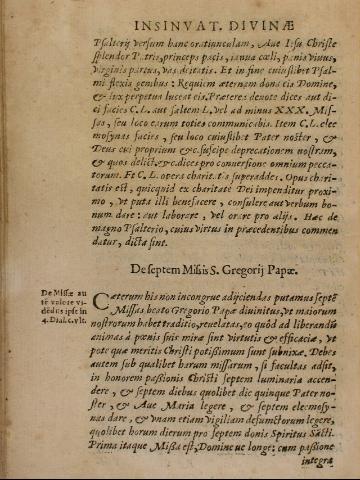 INSINVAT. DIVINÆ
Psalterij versum hanc oratiunculam, Aue Iesu Christe
splendor Patris, princeps pacis, ianua cœli, panis viuus,
virginis partus, vas deitatis. Et in fine cuiuslibet Psal-
mi flexis genibus: Requiem æternam dona eis Domine,
& lux perpetua luceat eis. Præterea deuote dices aut di-
ci facies C L. aut saltem L, vel ad minus XXX. Mis-
sas, seu loco earum toties communicabis. Item C L. elee
mosynas facies, seu loco cuiuslibet Pater noster, &
Deus cui proprium &c. suscipe deprecationem nostram,
& quos delict. &c. dices pro conuersione omnium pecca-
torum. Et C L. opera charitatis superaddes. Opus chari-
tatis est, quicquid ex charitate Dei impenditur proxi-
mo, vt puta illi benefacere, consulere aut verbum bo-
num dare: aut laborare, vel orare pro alijs. Hæc de
magno Psalterio, cuius virtus in præcedentibus commen
datur, dicta sint.
De septem Missis S. Gregorij Papæ.
De Missæ au
tē valore vi-
dēdus ipse in
4. Dial. c. vlt.
Cæterum his non incongrue adijciendas putamus septē
Missas beato Gregorio Papæ diuinitus, vt maiorum
nostrorum habet traditio, reuelatas, eo quòd ad liberandū
animas à pœnis suis miræ sint virtutis & efficaciæ, vt
pote quæ meritis Christi potissimum sunt subnixæ. Debes
autem sub qualibet harum missarum, si facultas adsit,
in honorem passionis Christi septem luminaria accen-
dere, & septem diebus quolibet die quinque Pater no-
ster, & Aue Maria legere, & septem eleemosy-
nas dare, & vnam etiam vigiliam defunctorum legere,
quolibet horum dierum pro septem donis Spiritus Sācti.
Prima itaque Missa est, Domine ne longe: cum passione
integra